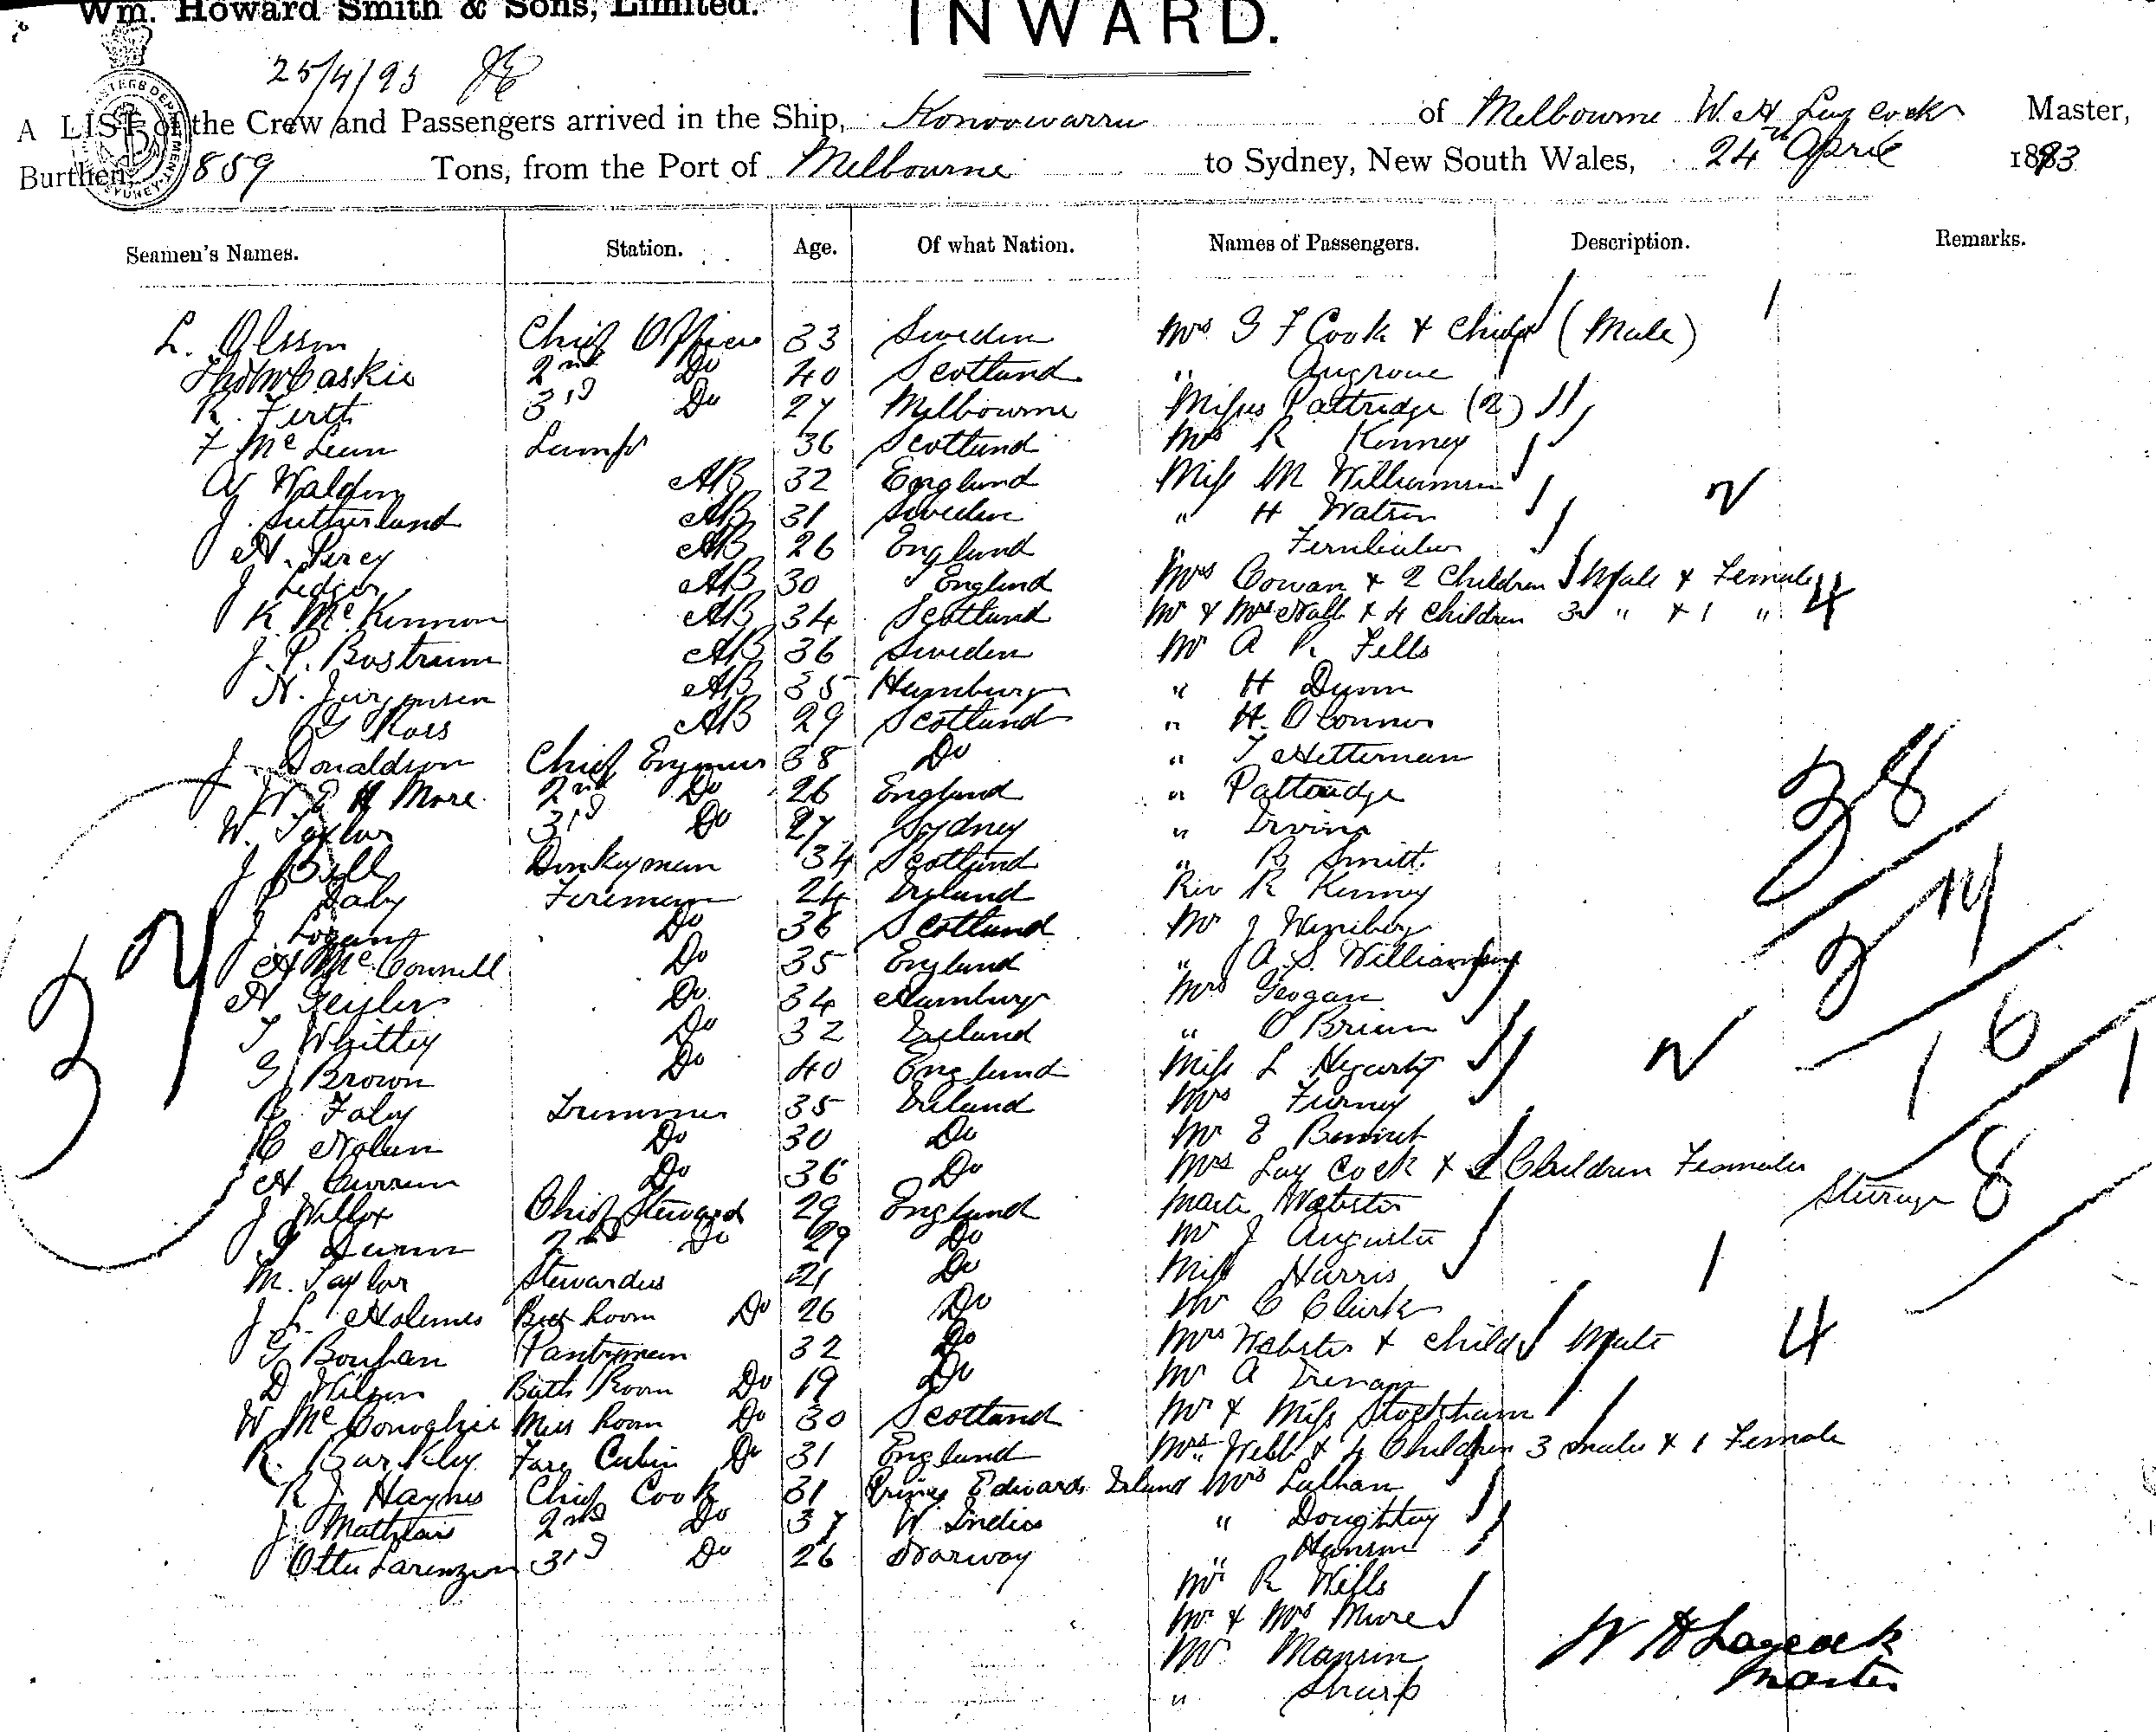 Wm. Howard Smith & Sons, Limited.
INWARD.
25/4/93
A LIST of the Crew and Passengers arrived in the Ship, Konoowarra of Melbourne W. H. Laycock Master,
Burthen 859 Tons, from the Port of Melbourne to Sydney, New South Wales, 24th April 1893
Seamen's Names. Station. Age. Of what Nation. Names of Passengers. Description. Remarks.
L. Olsson Chief Officer 33 Sweden Mrs G F Cook & Child (Male) 1
Thos McCaskie 2nd Do 40 Scotland " Angrove
R. Firth 3rd Do 27 Melbourne Misses Pattridge (2)
F McLean Lamps 36 Scotland Mrs R Kenney
W Waldon AB 32 England Miss M Williamson
J. Sutherland AB 31 Sweden " H Watson
H. Percy AB 26 England "
J Ledger AB 30 England Mrs Cowan & 2 Children Male & Female 4
K McKinnon AB 34 Scotland Mr & Mrs Nall & 4 Children 3 " & 1 "
J. P. Bostrum AB 36 Sweden Mr A P. Fells
N. Jurgensen AB 35 Hamburg " H Dunn
G Ross AB 29 Scotland " H. OConnor
J Donaldson Chief Engineer 38 Do " T Hetternan
W E H More 2nd Do 26 England " Pattridge
W. Taylor 3rd Do 27 Sydney " Irvine
J Bell Donkeyman 34 Scotland " B Smith
P Daly Fireman 24 Ireland Rev R Kenney
J. Logan Do 36 Scotland Mr J
H McConnell Do 35 England " A. S. Williamson
H Geisler Do 34 Hamburg Mrs Geogan
T Whittey Do 32 Ireland " O'Brien
G Brown Do 40 England Miss L Hegarty
P. Faley Trimmer 35 Ireland Mrs Furney
C Nolan Do 30 Do Mr E Bennet
H Curran Do 36 Do Mrs Laycock & 2 Children Females
J Willox Chief Steward 29 England Master Webster Steerage 8
G Dunn 2nd Do 29 Do Mr J Augusta
M. Taylor Stewardess 21 Do Miss Harris 1
J. L. Holmes Bed Room Do 26 Do Mr C Clark
G Boughan Pantryman 32 Do Mrs Webster & Child Male 4
D Wilson Bath Room Do 19 Do Mr A Trenam
W McConochie Mess Room Do 30 Scotland Mr & Miss Stockham
R. Barkley Fore Cabin Do 31 England Mrs Webb & 4 Children 3 males & 1 Female
R J Haynes Chief Cook 31 Prince Edwards Island Mrs Latham
J Mathias 2nd Do 37 W Indies " Doughtey
Otto Larenzen 3rd Do 26 Norway " Hanson
Mr R Wills
Mr & Mrs Moore
Mr. Manson
" Sharp
W H Laycock
Master
37
38